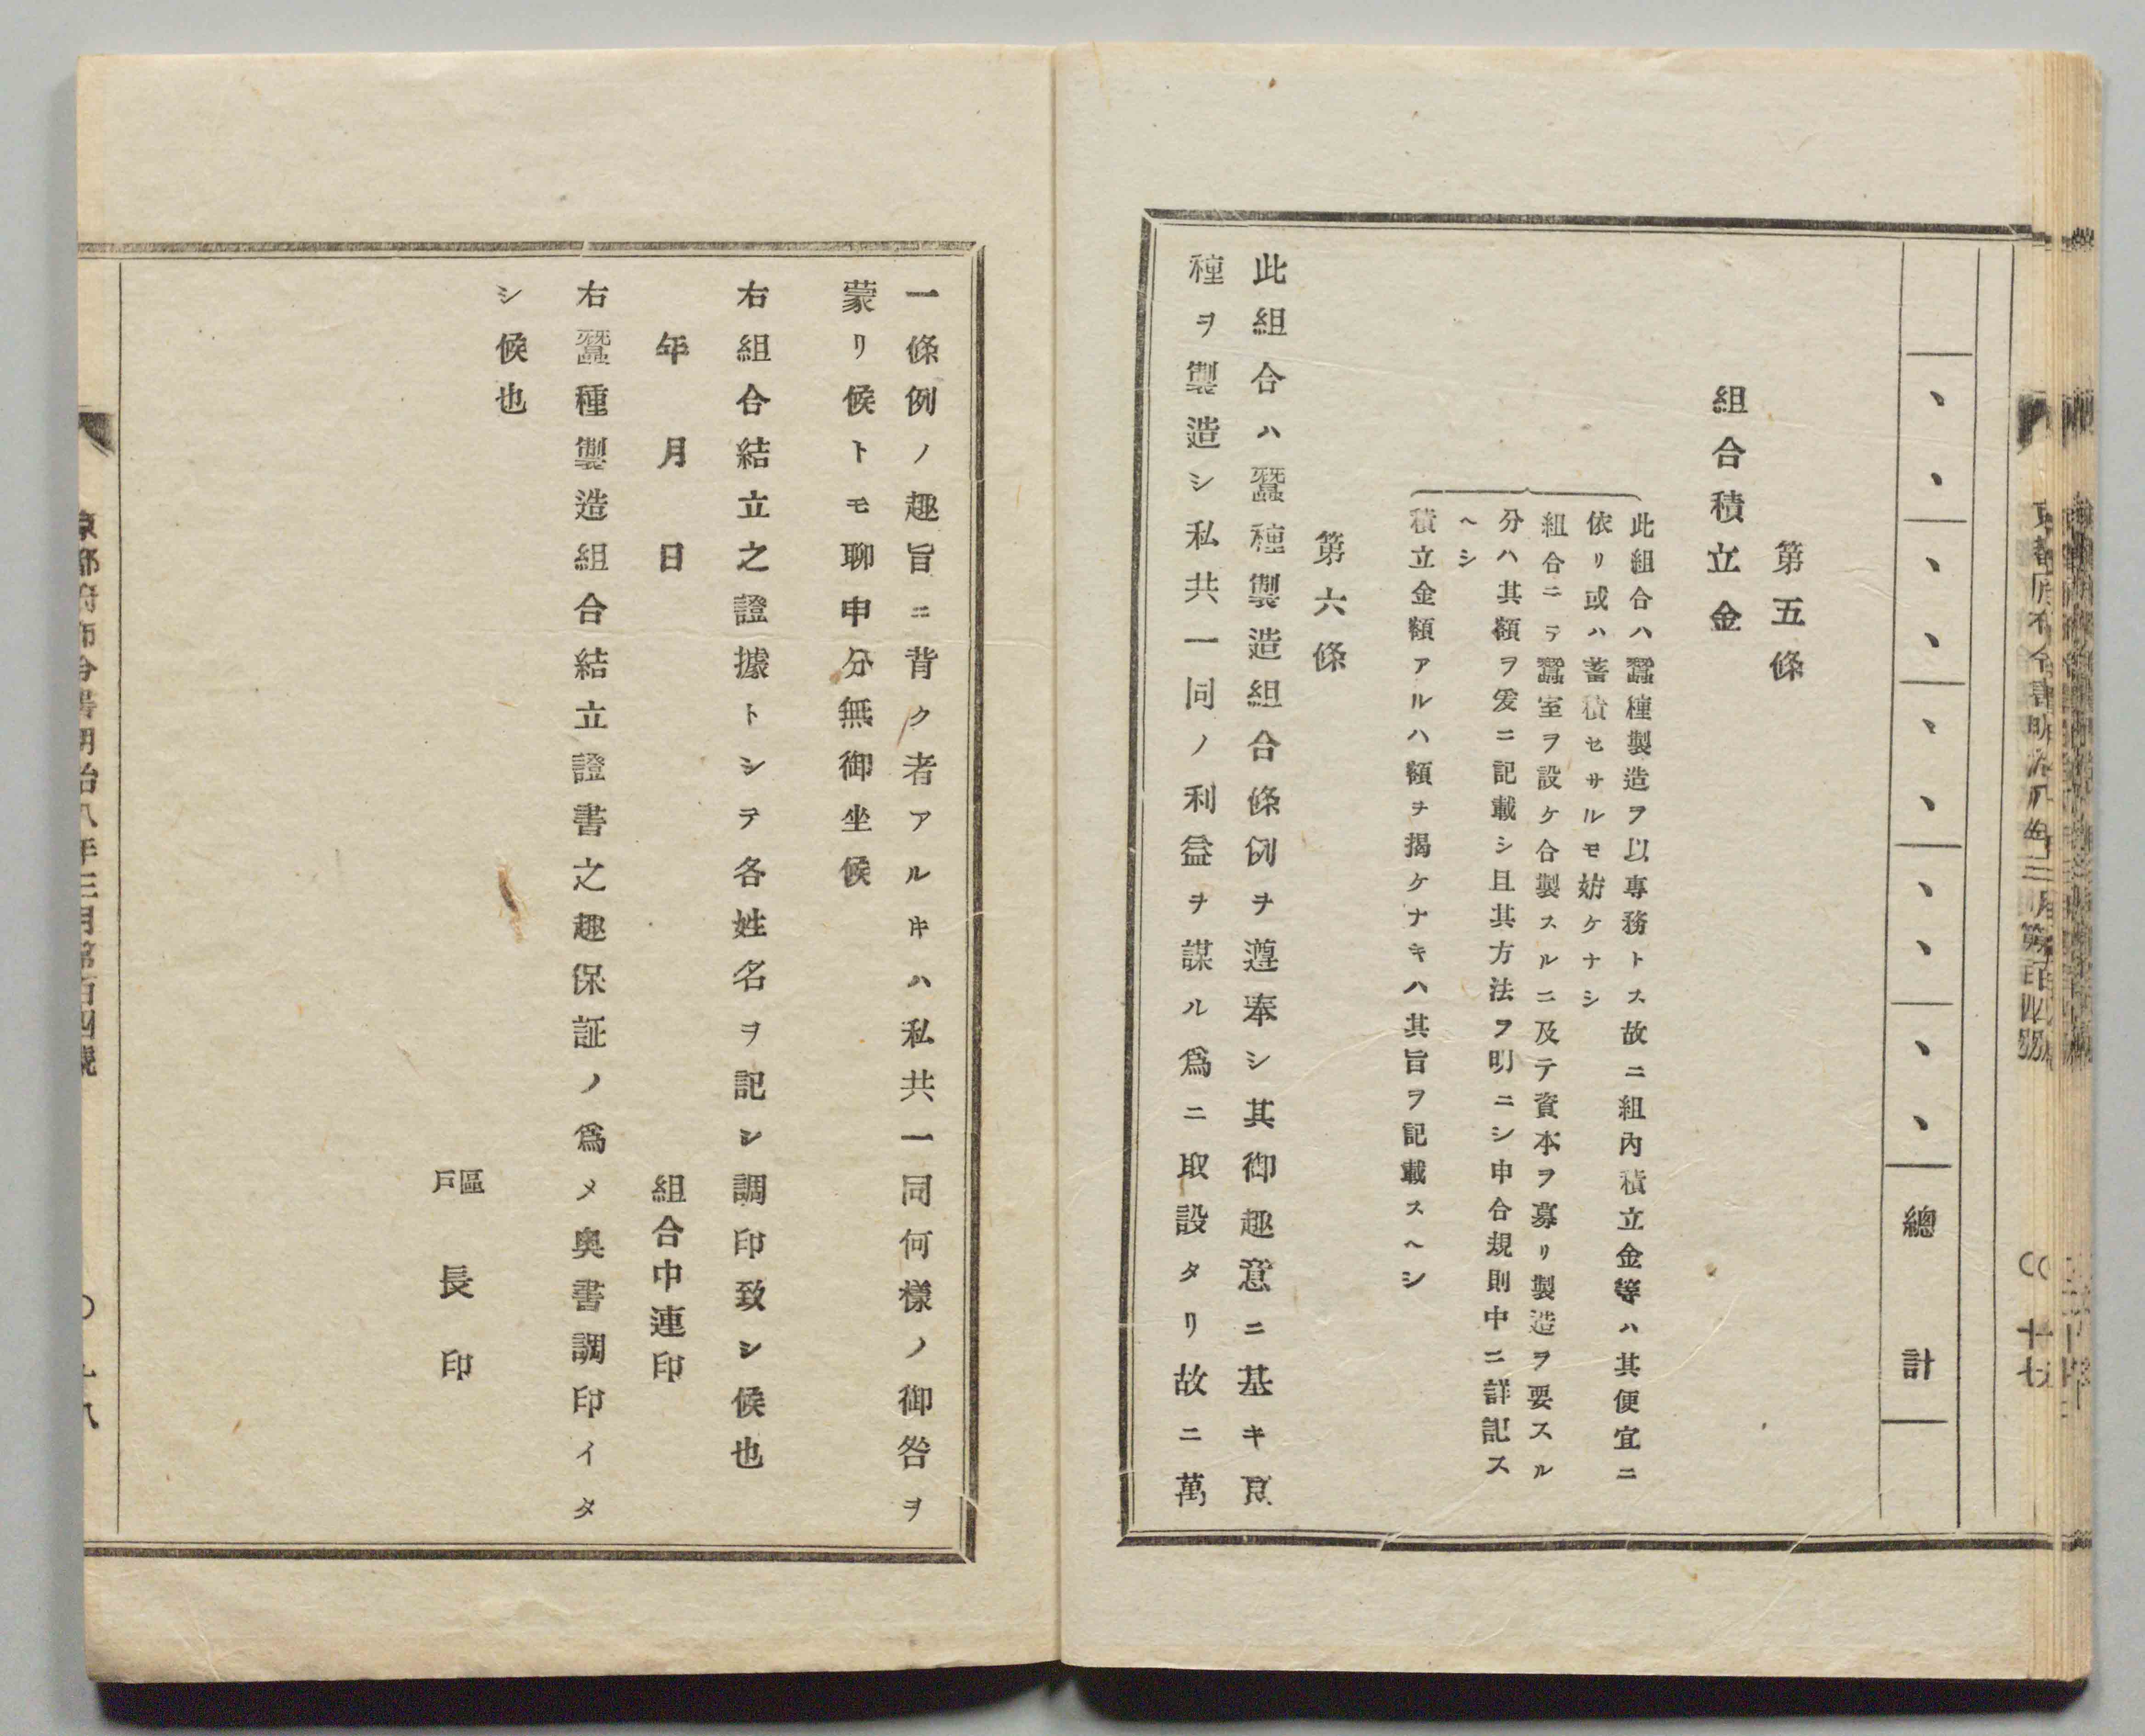 、、
、、
、、
、、
、、
總計
第五條
組合積立金
此組合ハ蠶種製造ヲ以專務トス故ニ組內積立金等ハ其便宜ニ
依リ或ハ蓄積セサルモ妨ケナシ
組合ニテ蠶室ヲ設ケ合製スルニ及テ資本ヲ募リ製造ヲ要スル
分ハ其額ヲ爰ニ記載シ且其方法ヲ明ニシ申合規則中ニ詳記ス
ヘシ
積立金額アルハ額ヲ揭ケナキハ其旨ヲ記載スヘシ
第六條
此組合ハ蠶種製造組合條例ヲ遵奉シ其御趣意ニ基キ良
種ヲ製造シ私共一同ノ利益ヲ謀ル爲ニ取設タリ故ニ萬
一條例ノ趣旨ニ背ク者アルキハ私共一同何樣ノ御咎ヲ
蒙リ候トモ聊申分無御坐候
右組合結立之證據トシテ各姓名ヲ記シ調印致シ候也
年月日
組合中連印
右蠶種製造組合結立證書之趣保証ノ爲メ奧書調印イタ
シ候也
區戶長印
京都府布令書明治八年三月第百四號
十八